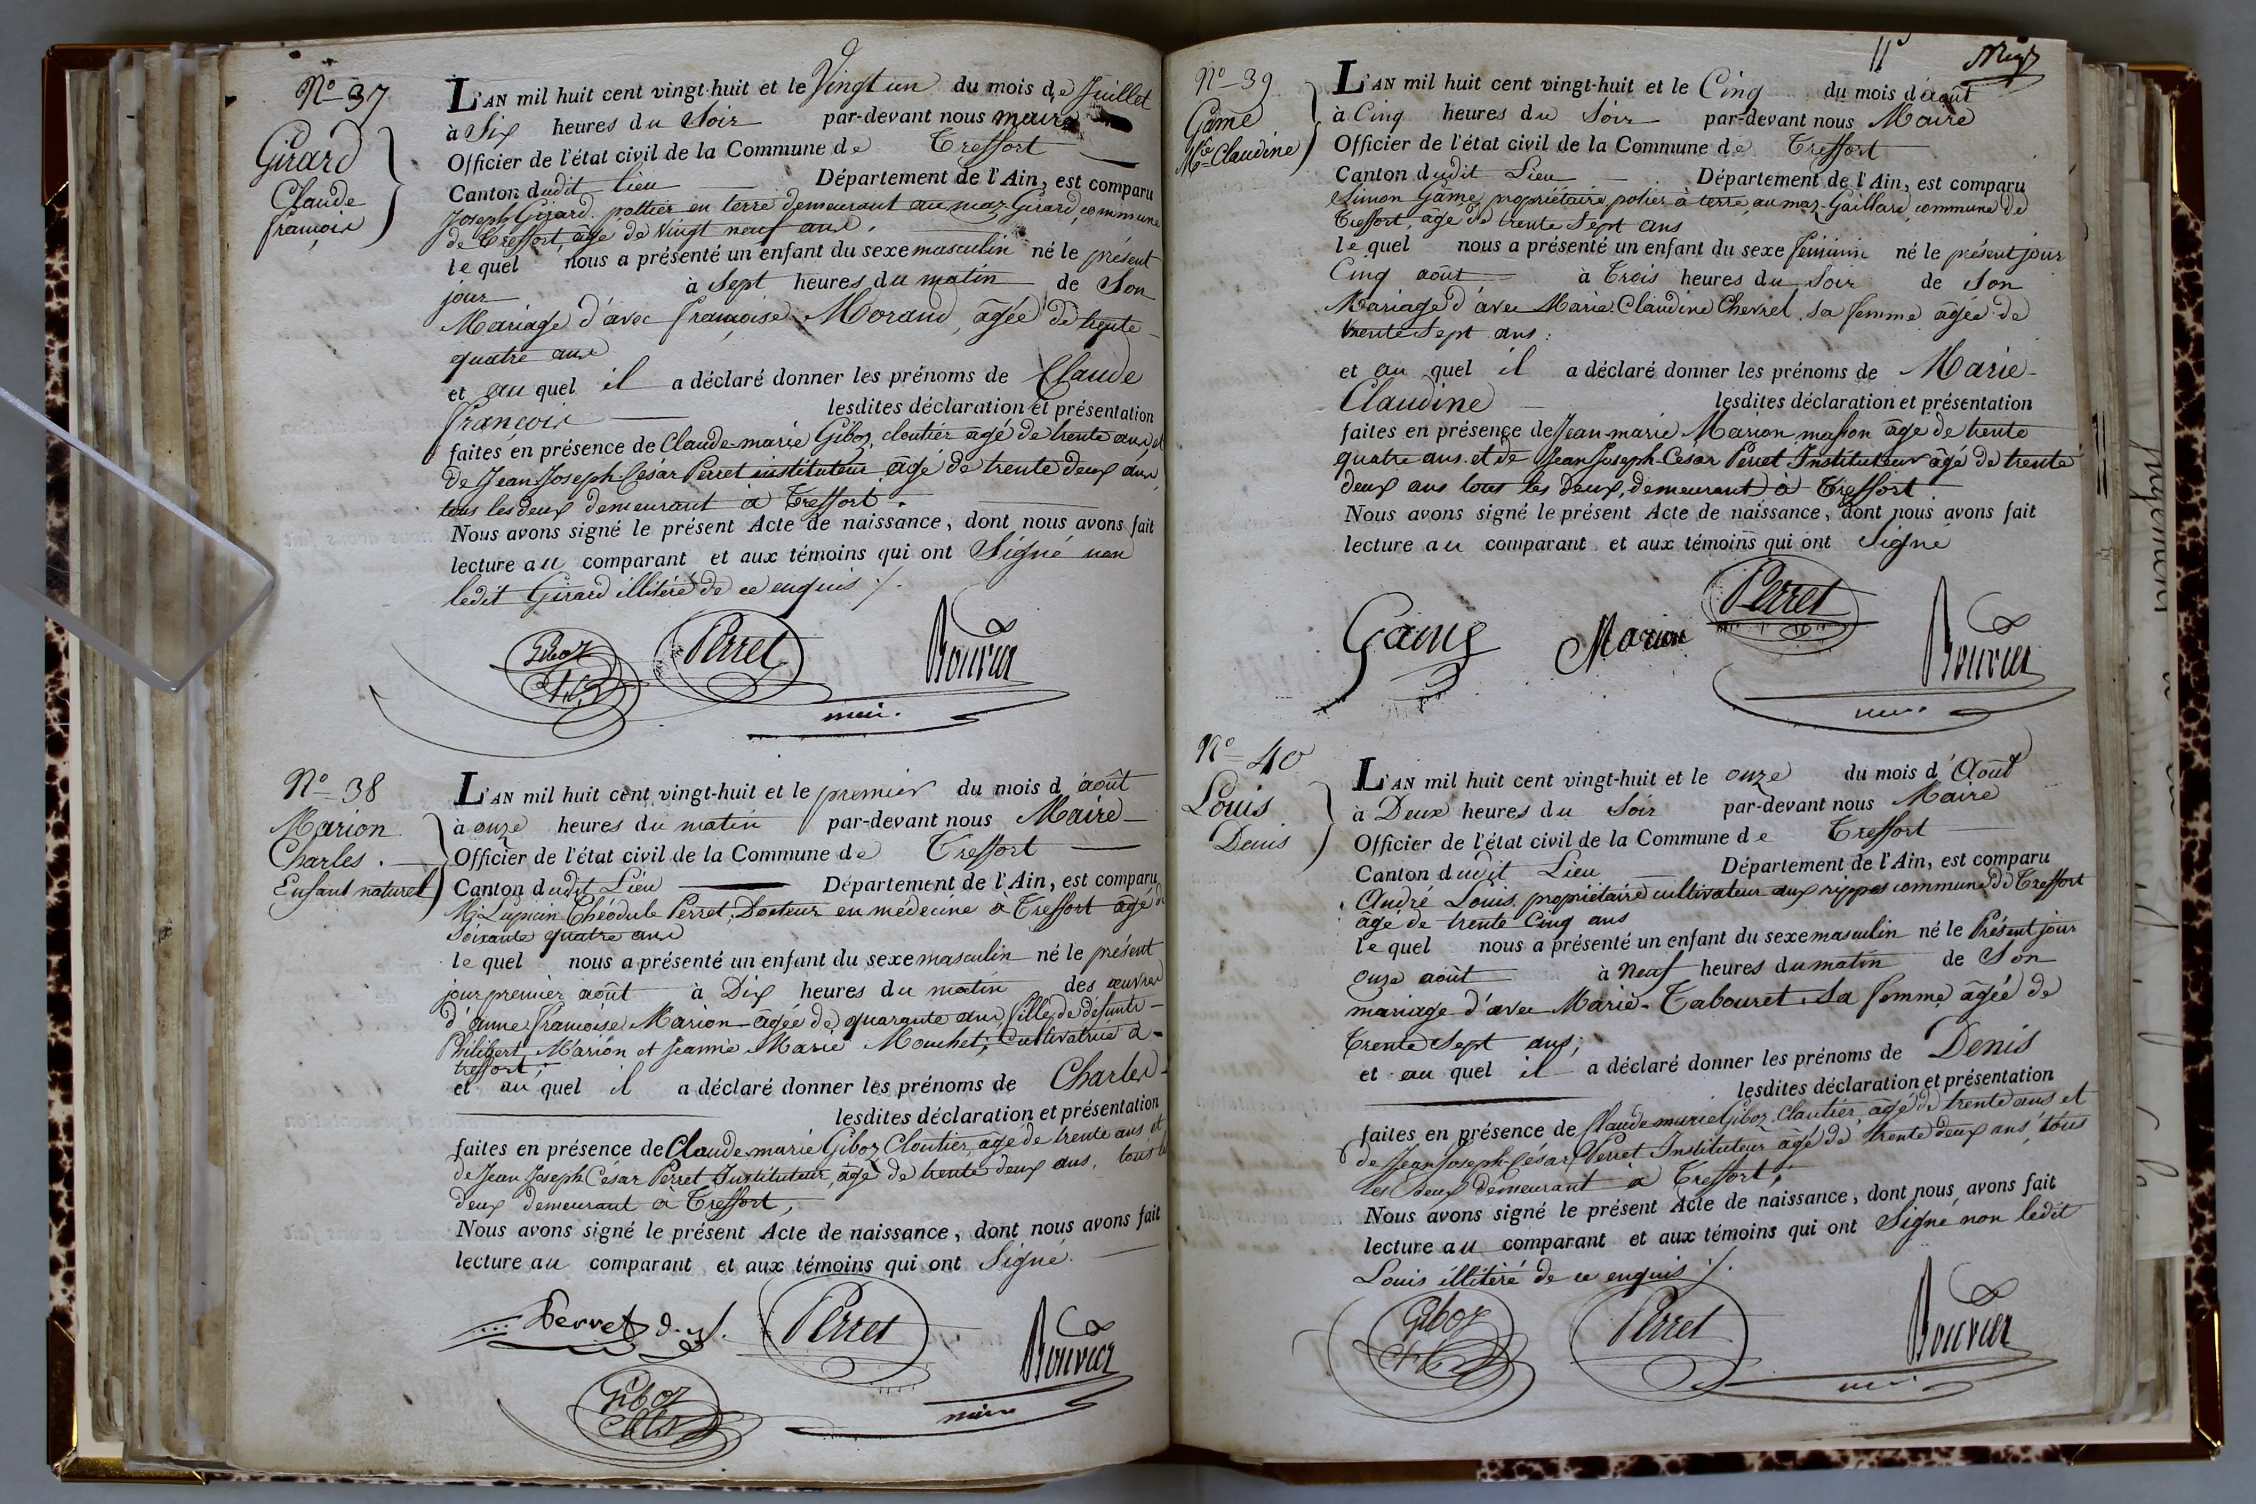 N.o 37
Girard
Claude
françois
L'AN mil huit cent vingt-huit et le Vingt un du mois de Juillet
à Six heures du Soir par-devant nous maire
Officier de l'état civil de la Commune de Treffort
Canton dudit lieu Département de l'Ain, est comparu
Joseph Girard pottier en terre demeurant au maz Girard, commune
de Treffort, âgé de vingt neuf ans,
lequel nous a présenté un enfant du sexe masculin né le présent
jour à Sept heures du matin de Son
Mariage d'avec françoise Morand, âgée de trente
quatre ans
et au quel il a déclaré donner les prénoms de Claude
François lesdites déclaration et présentation
faites en présence de Claude-marie Giboz, cloutier âgé de trente ans et
de Jean Joseph Cesar Perret instituteur âgé de trente deux ans,
tous les deux demeurant à Treffort.
Nous avons signé le présent Acte de naissance, dont nous avons fait
lecture au comparant et aux témoins qui ont Signé non
ledit Girard illitéré de ce enquis ./.
Giboz Perret Bouvier
maire
N.o 38
Marion
Charles.
Enfant naturel
L'AN mil huit cent vingt-huit et le premier du mois d'août
à onze heures du matin par-devant nous Maire
Officier de l'état civil de la Commune de Treffort
Canton dudit Lieu Département de l'Ain, est comparu
Mr Lupicin Théodule Perret, Docteur en médecine à Treffort âgé de
Soixante quatre ans
lequel nous a présenté un enfant du sexe masculin né le présent
jour premier août à Dix heures du matin des œuvres
d'anne françoise Marion âgée de quarante ans, fille de défunts
Philibert Marion et Jeanne Marie Mouchet, Cultivatrice à
treffort;
et au quel il a déclaré donner les prénoms de Charles
lesdites déclaration et présentation
faites en présence de Claude marie Giboz Cloutier, âgé de trente ans et
de Jean Joseph César Perret Instituteur, âgé de trente deux ans, tous les
deux demeurant à Treffort,
Nous avons signé le présent Acte de naissance, dont nous avons fait
lecture au comparant et aux témoins qui ont Signé
Perret Perret Bouvier
Giboz maire
11
N.o 39
Gâme
Mie Claudine
L'AN mil huit cent vingt-huit et le Cinq du mois d'août
à Cinq heures du Soir par-devant nous Maire
Officier de l'état civil de la Commune de Treffort
Canton dudit Lieu Département de l'Ain, est comparu
Simon Gâme, propriétaire, potier à terre, au maz-Gaillard, commune de
Treffort, âgé de trente Sept ans
lequel nous a présenté un enfant du sexe féminin né le présent jour
Cinq août à Trois heures du Soir de Son
Mariage d'avec Marie Claudine Chevrel, sa femme âgée de
trente Sept ans:
et au quel il a déclaré donner les prénoms de Marie
Claudine lesdites déclaration et présentation
faites en présence de Jean-marie Marion, masson âgé de trente
quatre ans et de Jean Joseph Cesar Perret Instituteur âgé de trente
deux ans tous les deux, demeurant à Treffort.
Nous avons signé le présent Acte de naissance, dont nous avons fait
lecture au comparant et aux témoins qui ont Signé
Perret
Game Marion Bouvier
N.o 40
Louis
Denis
L'AN mil huit cent vingt-huit et le onze du mois d'Août
à Deux heures du Soir par-devant nous Maire
Officier de l'état civil de la Commune de Treffort
Canton dudit Lieu Département de l'Ain, est comparu
André Louis, propriétaire cultivateur aux rippes commune de Treffort
âgé de trente Cinq ans
lequel nous a présenté un enfant du sexe masculin né le Présent jour
onze août à Neuf heures du matin de Son
mariage d'avec Marie Tabouret, Sa femme âgée de
Trente Sept ans;
et au quel il a déclaré donner les prénoms de Denis
lesdites déclaration et présentation
faites en présence de Claude marie Giboz, Cloutier, âgé de trente ans et
de Jean Joseph César Perret Instituteur âgé de trente deux ans, tous
les deux demeurant à Treffort;
Nous avons signé le présent Acte de naissance, dont nous avons fait
lecture au comparant et aux témoins qui ont Signé non ledit
Louis illitéré de ce enquis ./.
Giboz Perret Bouvier